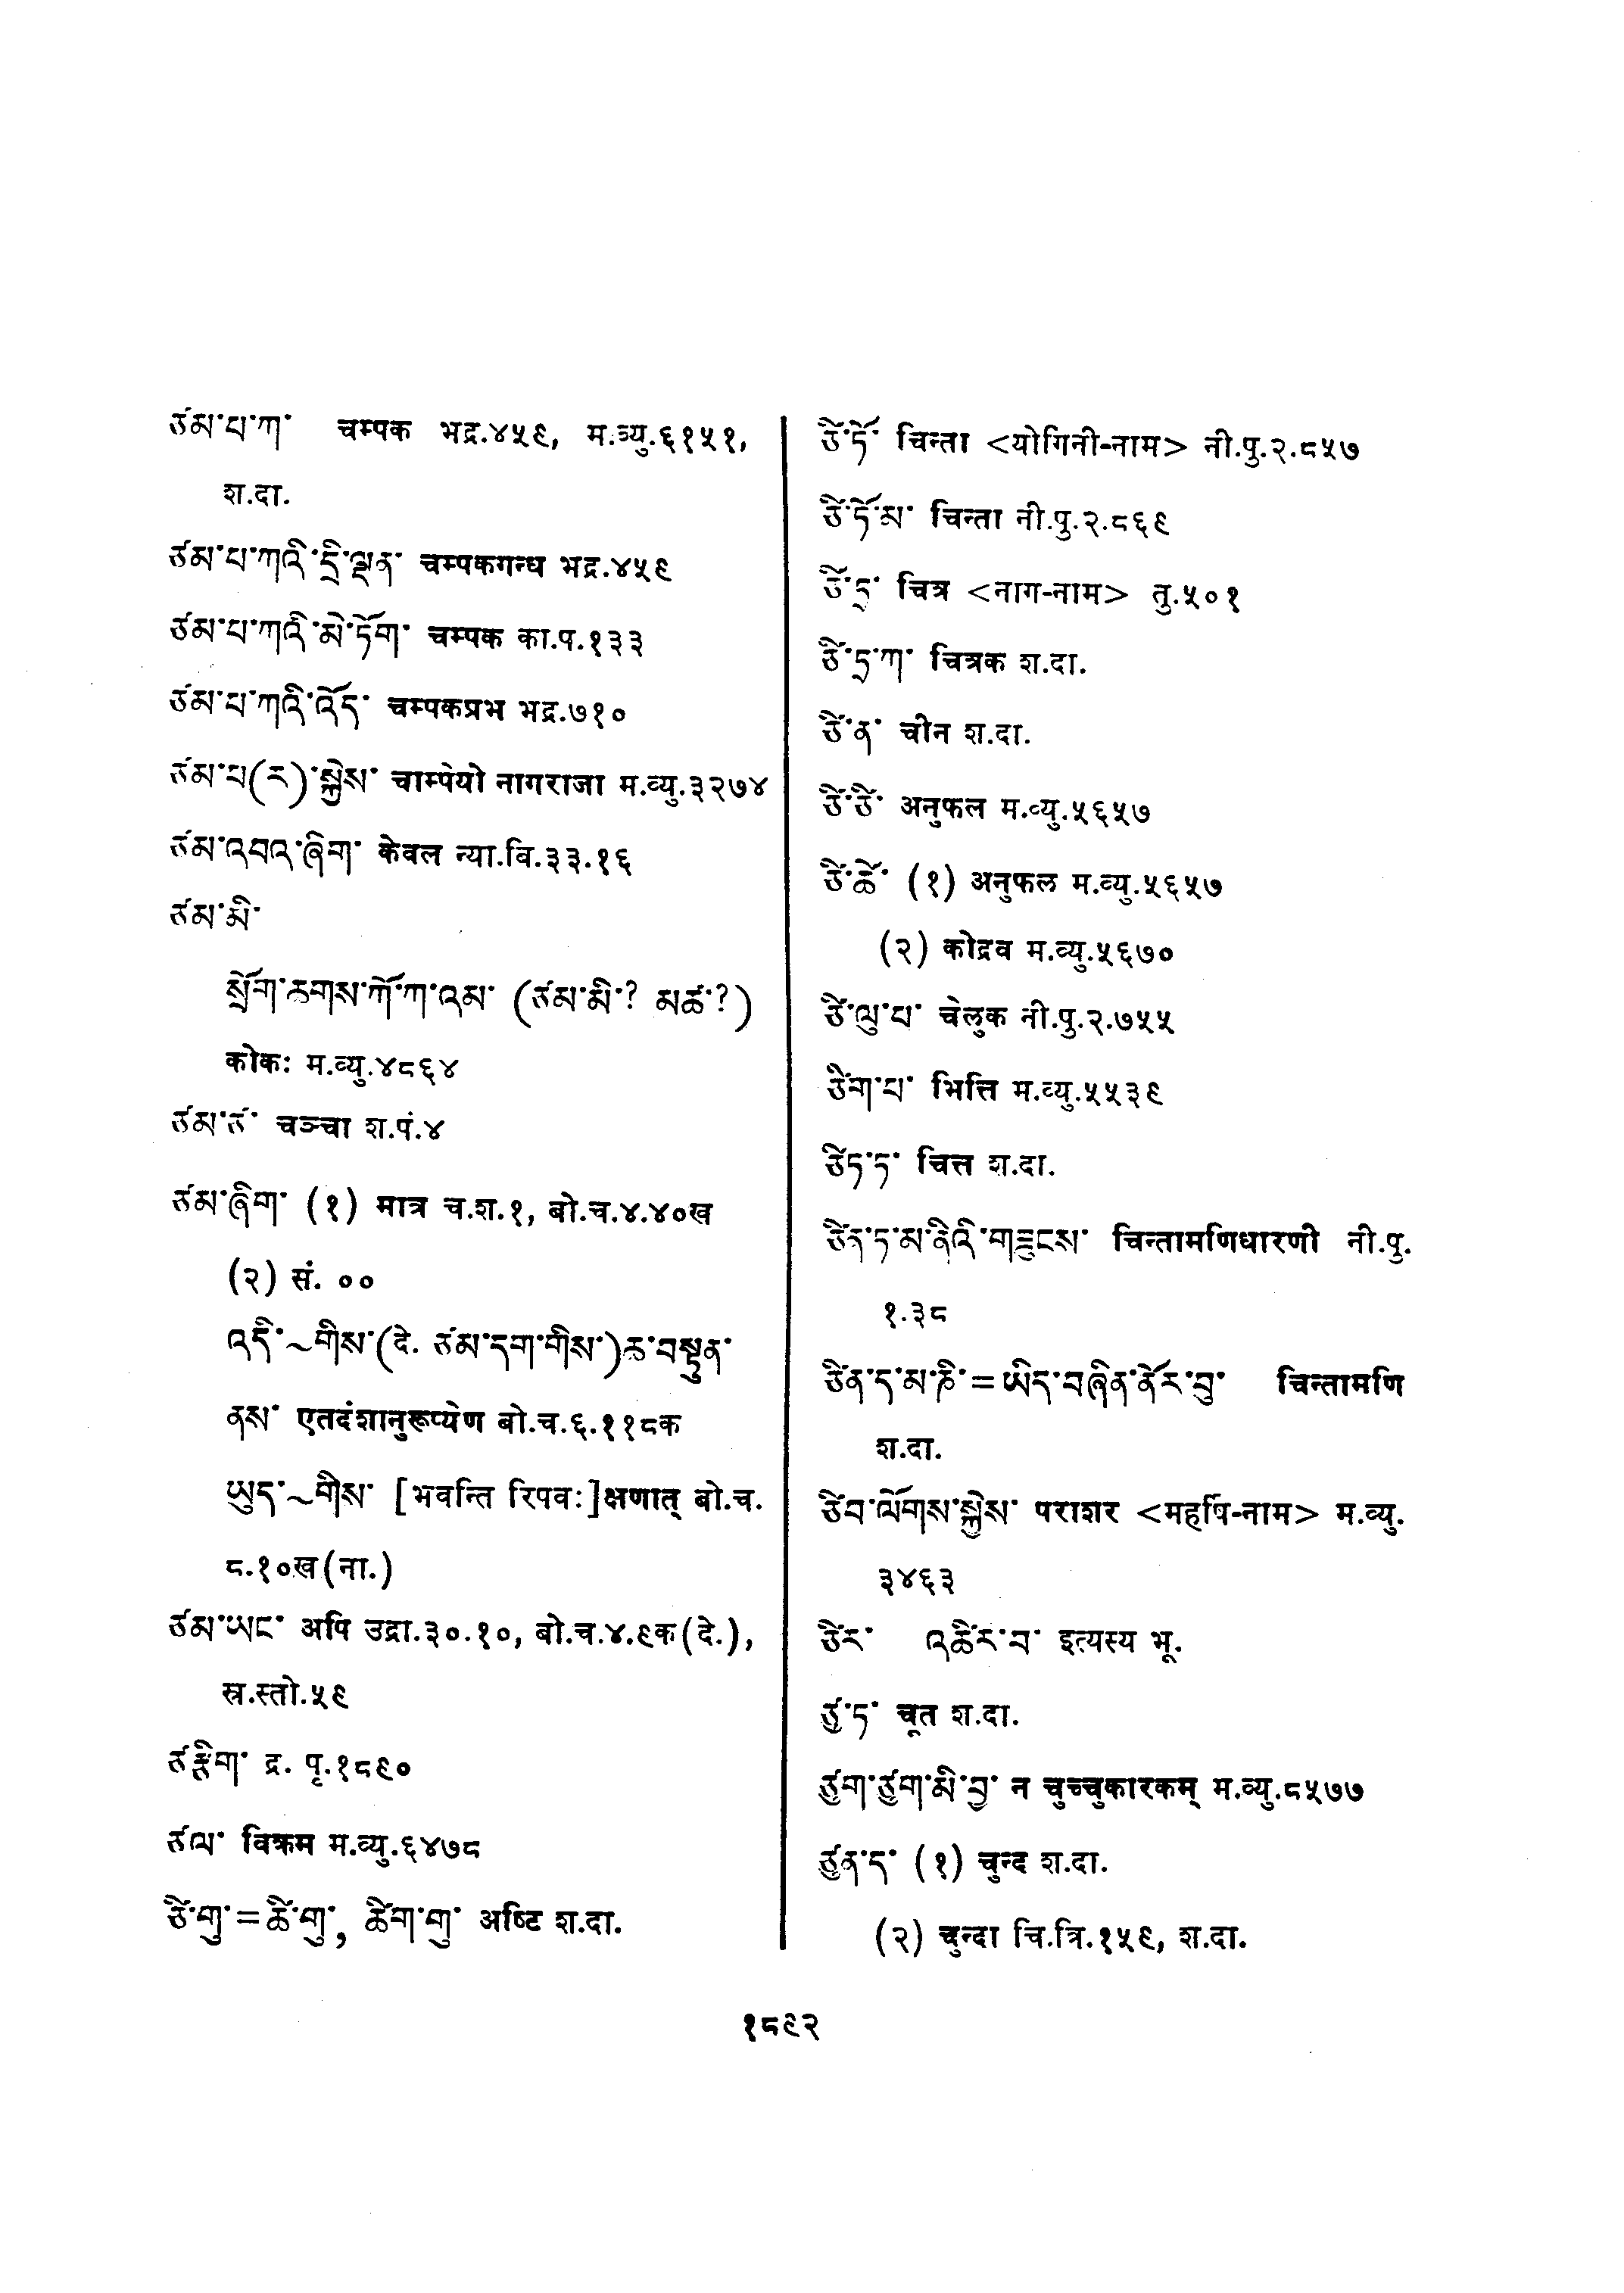 ཙམ་པ་ཀ་ चम्पक भद्र.४५९, म.व्यु.६१५१,
श.दा.
ཙམ་པ་ཀའི་དྲི་ལྡན་ चम्पकगन्ध भद्र.४५९
ཙམ་པ་ཀའི་མེ་ཏོག་ चम्पक का.प.१३३
ཙམ་པ་ཀའི་འོད་ चम्पकप्रभ भद्र.७१०
ཙམ་པ(ར)་སྐྱེས་ चाम्पेयो नागराजा म.व्यु.३२७४
ཙམ་འབའ་ཞིག་ केवल न्या.वि.३३.१६
ཙམ་མི་
སྲོག་ཆགས་ཀོ་ཀ་འམ་ (ཙམ་མི་? མཚ་?)
कोकः म.व्यु.४८६४
ཙམ་ཙ་ चञ्चा श.पं.४
ཙམ་ཞིག་ (१) मात्र च.श.१, बो.च.४.४०ख
(२) सं. ००
འདི་~གིས་(दे. ཙམ་དག་གིས་)ཆ་བསྟུན་
ནས་ एतदंशानुरूप्येण बो.च.६.११८क
ཡུད་~གིས་ [भवन्ति रिपवः]क्षणात् बो.च.
८.१०ख(ना.)
ཙམ་ཡང་ अपि उद्रा.३०.१०, बो.च.४.९क(दे.),
स्र.स्तो.५९
ཙརྩིག་ द्र. पृ.१८९०
ཙལ་ विक्रम म.व्यु.६४७८
ཙི་གུ་=ཚི་གུ་, ཚིག་གུ་ अष्टि श.दा.
ཙི་ཏོ་ चिन्ता <योगिनी-नाम> नी.पु.२.८५७
ཙི་ཏོ་མ་ चिन्ता नी.पु.२.८६९
ཙི་ཏྲ་ चित्र <नाग-नाम> तु.५०१
ཙི་ཏྲ་ཀ་ चित्रक श.दा.
ཙི་ན་ चीन श.दा.
ཙི་ཙི་ अनुफल म.व्यु.५६५७
ཙི་ཚེ་ (१) अनुफल म.व्यु.५६५७
(२) कोद्रव म.व्यु.५६७०
ཙི་ལུ་པ་ चेलुक नी.पु.२.७५५
ཙིག་པ་ भित्ति म.व्यु.५५३९
ཙིཏ་ཏ་ चित्त श.दा.
ཙིན་ཏ་མ་ཎིའི་གཟུངས་ चिन्तामणिधारणी नी.पु.
१.३८
ཙིན་ད་མ་ཎི་=ཡིད་བཞིན་ནོར་བུ་ चिन्तामणि
श.दा.
ཙིབ་ལོགས་སྐྱེས་ पराशर <महर्षि-नाम> म.व्यु.
३४६३
ཙིར་ འཚིར་བ་ इत्यस्य भू.
ཙུ་ཏ་ चूत श.दा.
ཙུག་ཙུག་མི་བྱ་ न चुच्चुकारकम् म.व्यु.८५७७
ཙུན་ད་ (१) चुन्द श.दा.
(२) चुन्दा चि.त्रि.१५९, श.दा.
१८९२